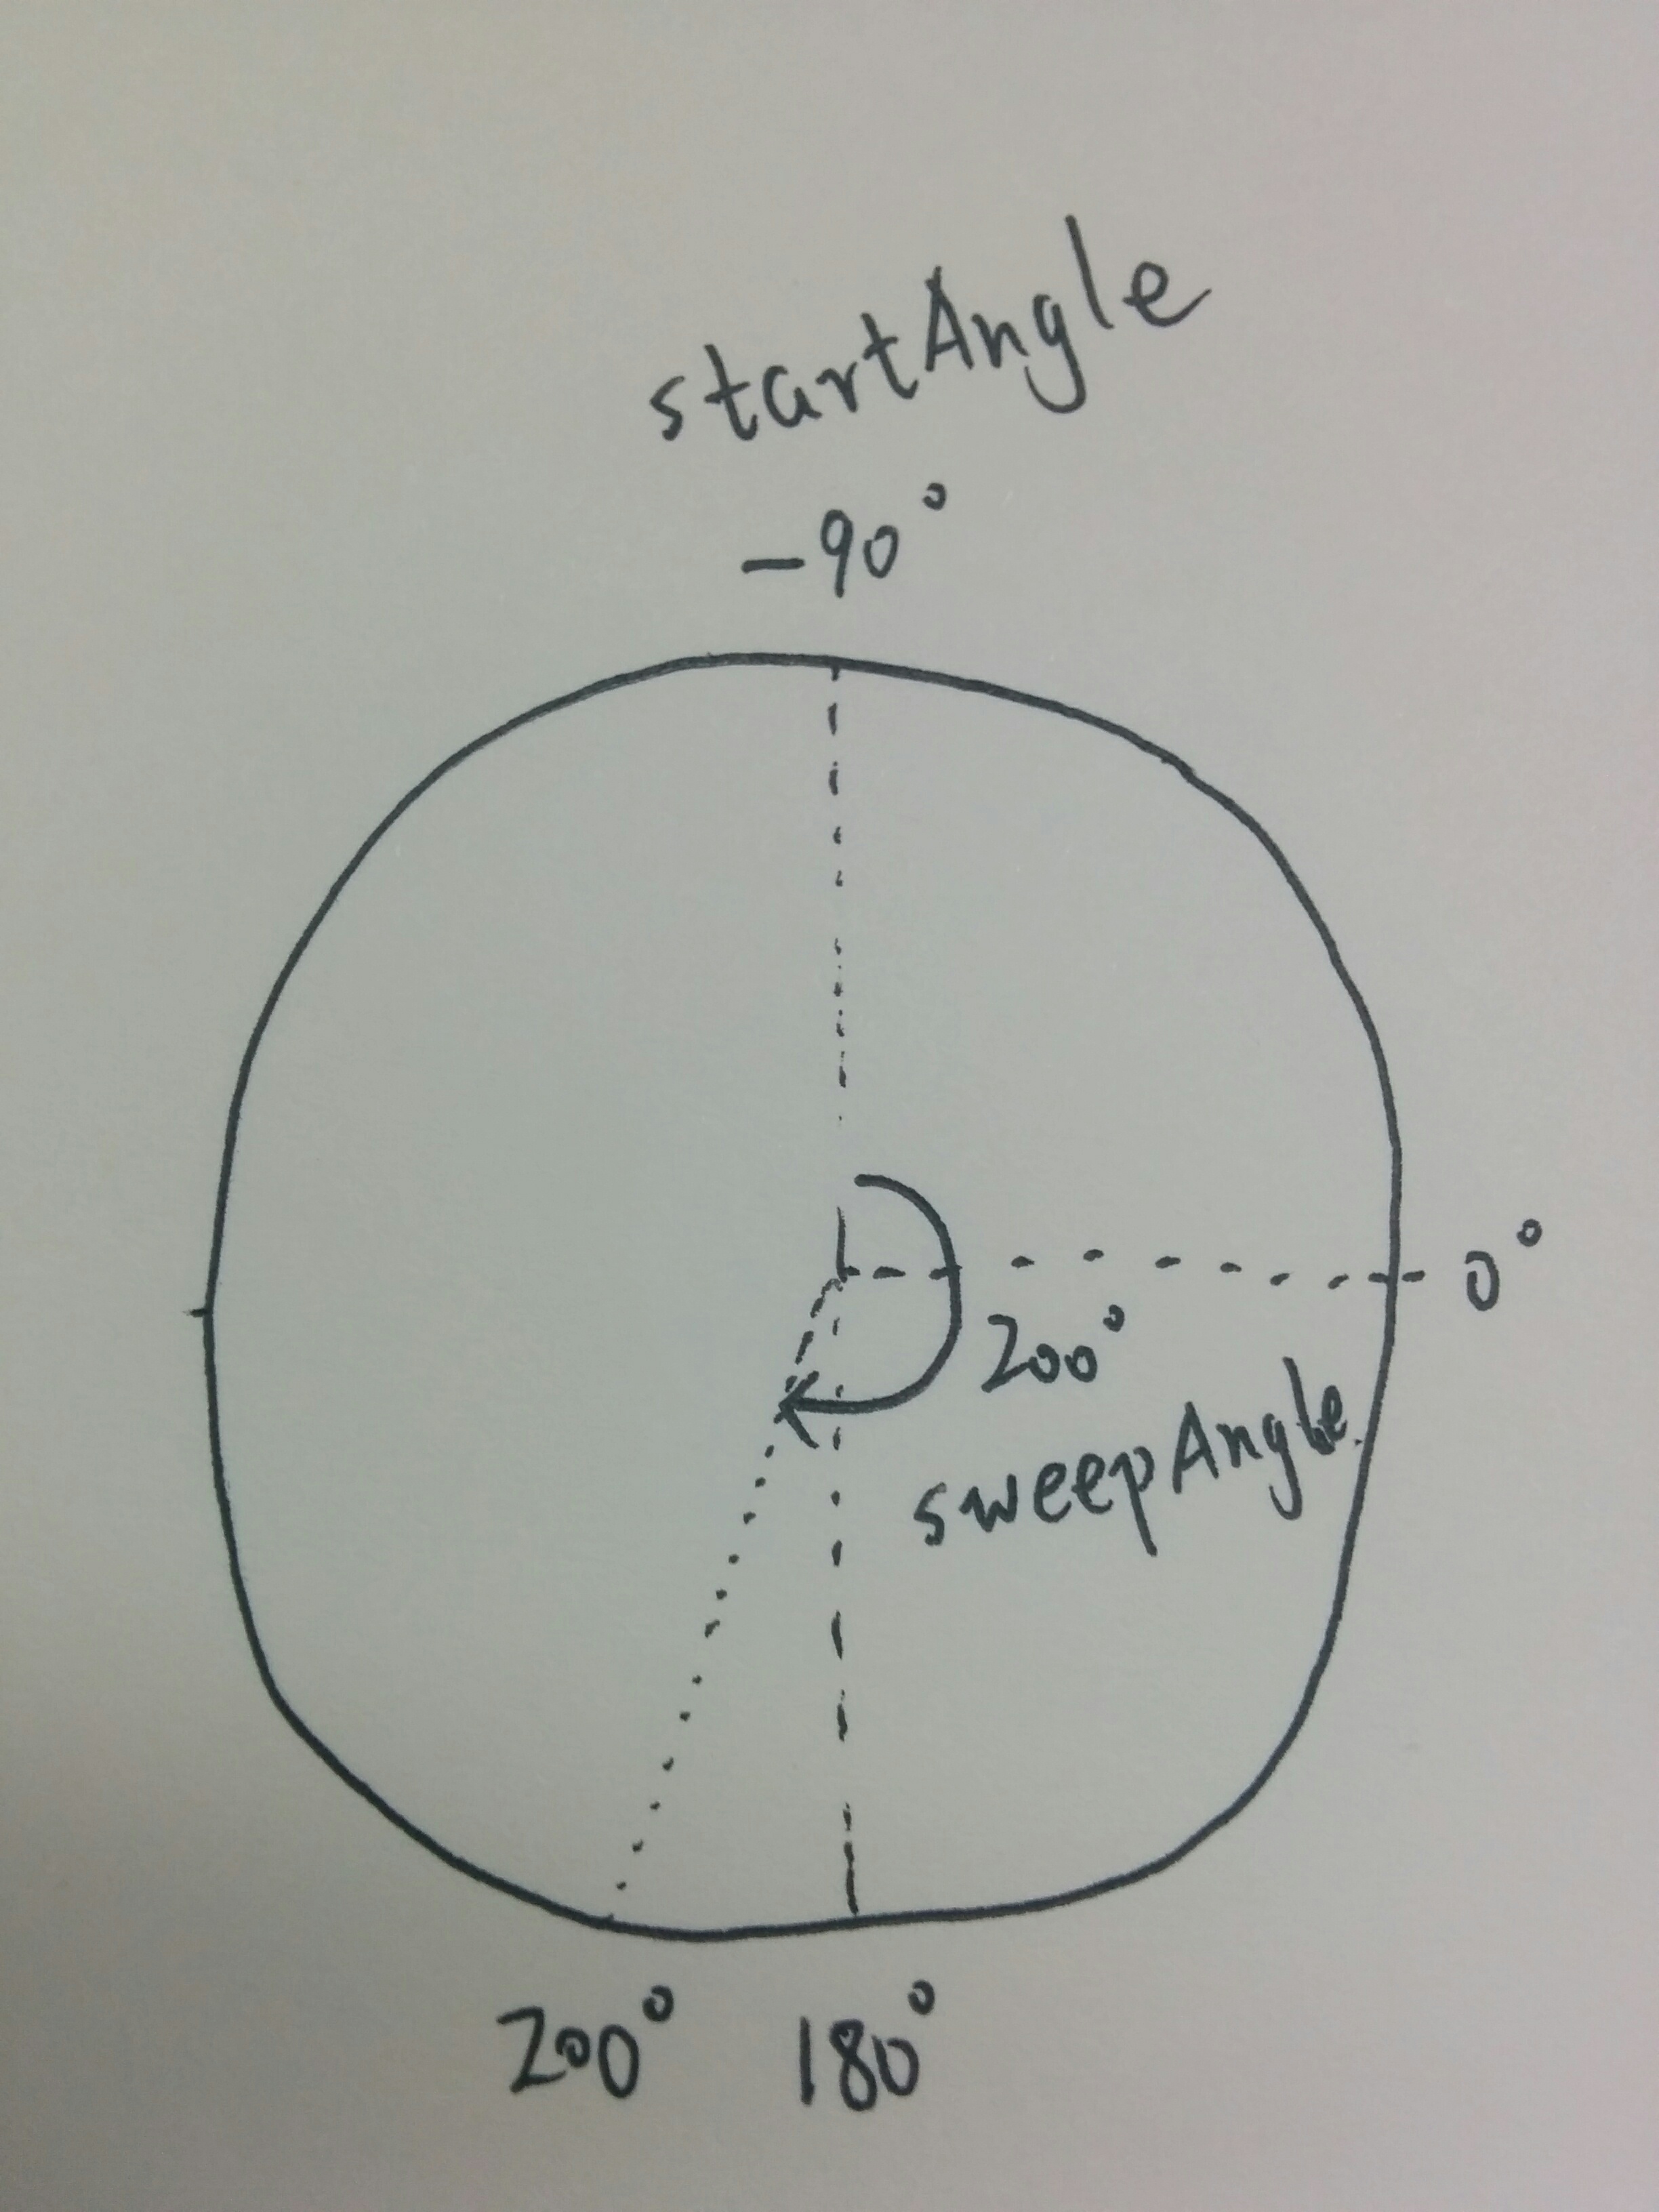 startAngle
-90°
0°
200°
sweepAngle
200° 180°